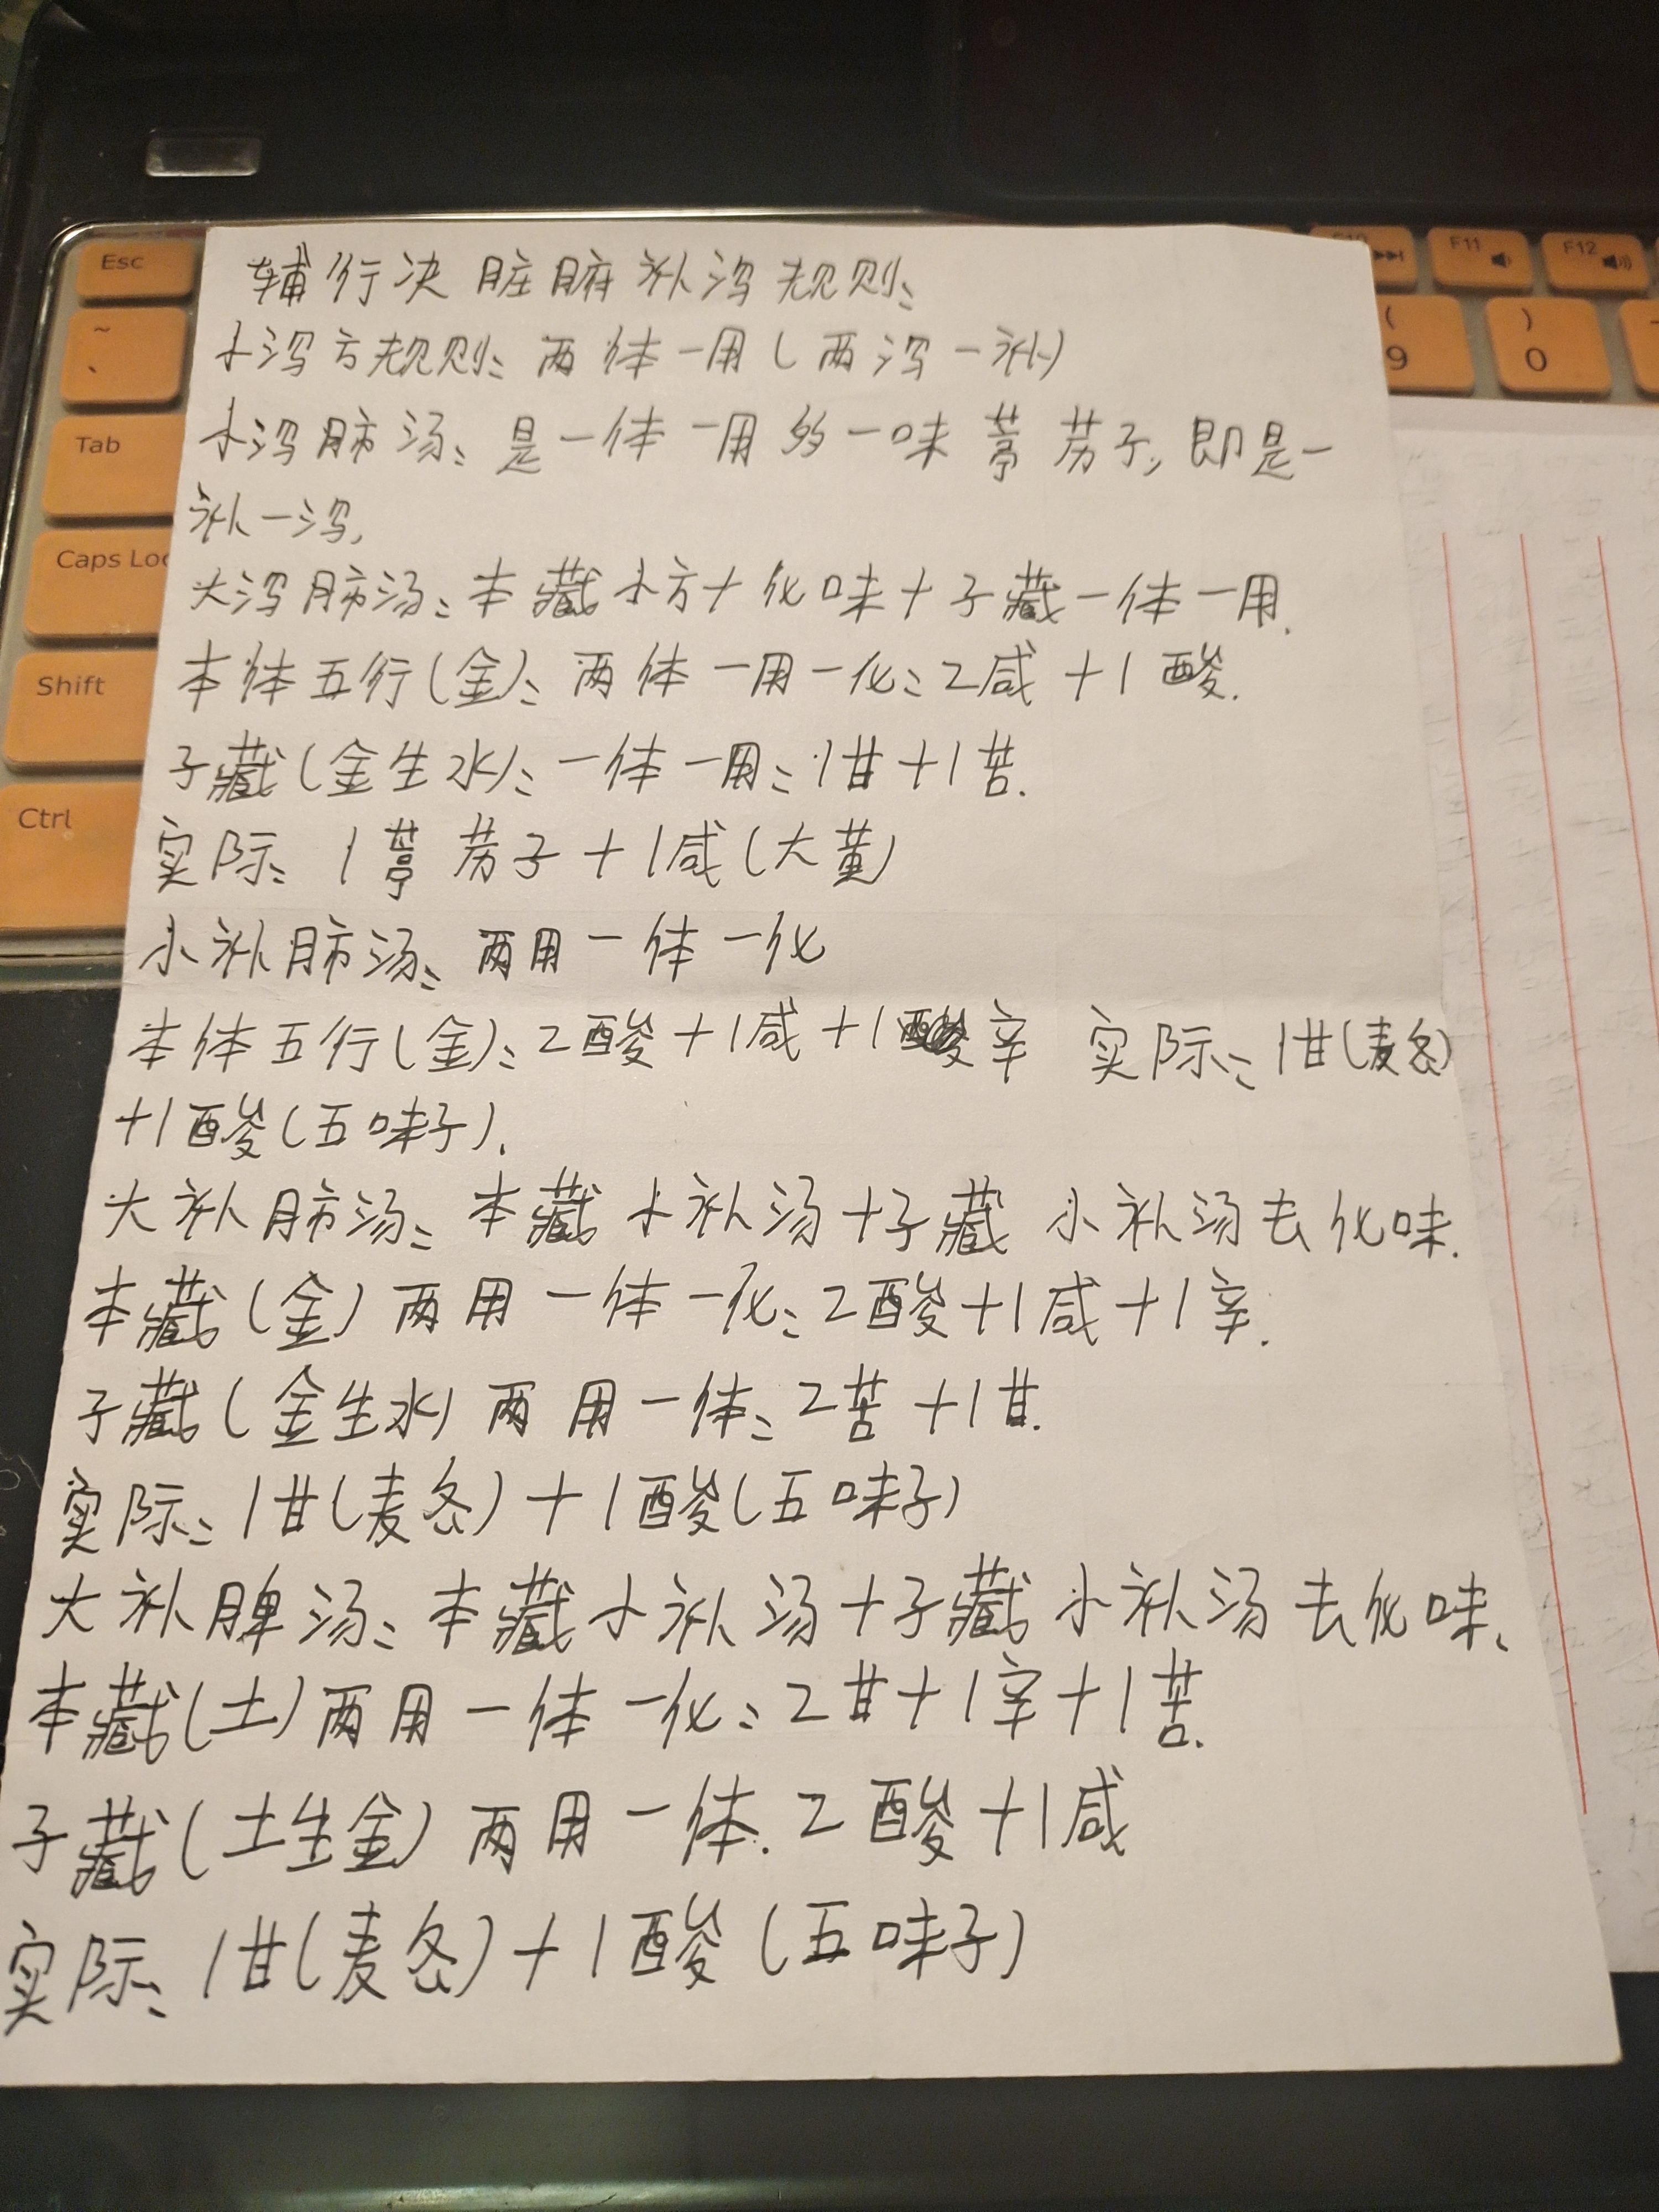 辅行决脏腑补泻规则:
小泻方规则:两体一用(两泻一补)
小泻肺汤:是一体一用的一味葶苈子,即是一
补一泻,
大泻肺汤:本藏小方+化味+子藏一体一用.
本体五行(金):两体一用一化:2咸+1酸.
子藏(金生水):一体一用:1甘+1苦.
实际:1葶苈子+1咸(大黄)
小补肺汤:两用一体一化
本体五行(金):2酸+1咸+1辛 实际:1甘(麦冬)
+1酸(五味子).
大补肺汤:本藏小补汤+子藏小补汤去化味.
本藏(金)两用一体一化:2酸+1咸+1辛.
子藏(金生水)两用一体:2苦+1甘.
实际:1甘(麦冬)+1酸(五味子)
大补脾汤:本藏小补汤+子藏小补汤去化味.
本藏(土)两用一体一化:2甘+1辛+1苦.
子藏(土生金)两用一体.2酸+1咸
实际:1甘(麦冬)+1酸(五味子)
Esc
~
、
Tab
Caps Loc
Shift
Ctrl
F10
F11
F12
(
9
)
0